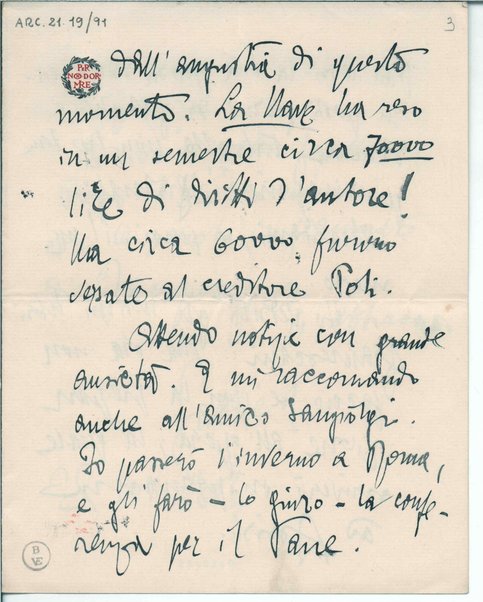 ARC. 21. 19/91
3
PER
NON DOR
MIRE
dall'angustia di questo
momento. La Nave ha reso
in un semestre circa 70000
lire di diritti d'autore!
Ma circa 60000, furono
segato al creditore Poli.
Attendo notizie con grande
ansietà. E mi raccomando
anche all'amico Sangiorgi.
Io passerò l'inverno a Roma,
e gli farò – lo giuro – la confe-
renza per il Pane.
B
VE